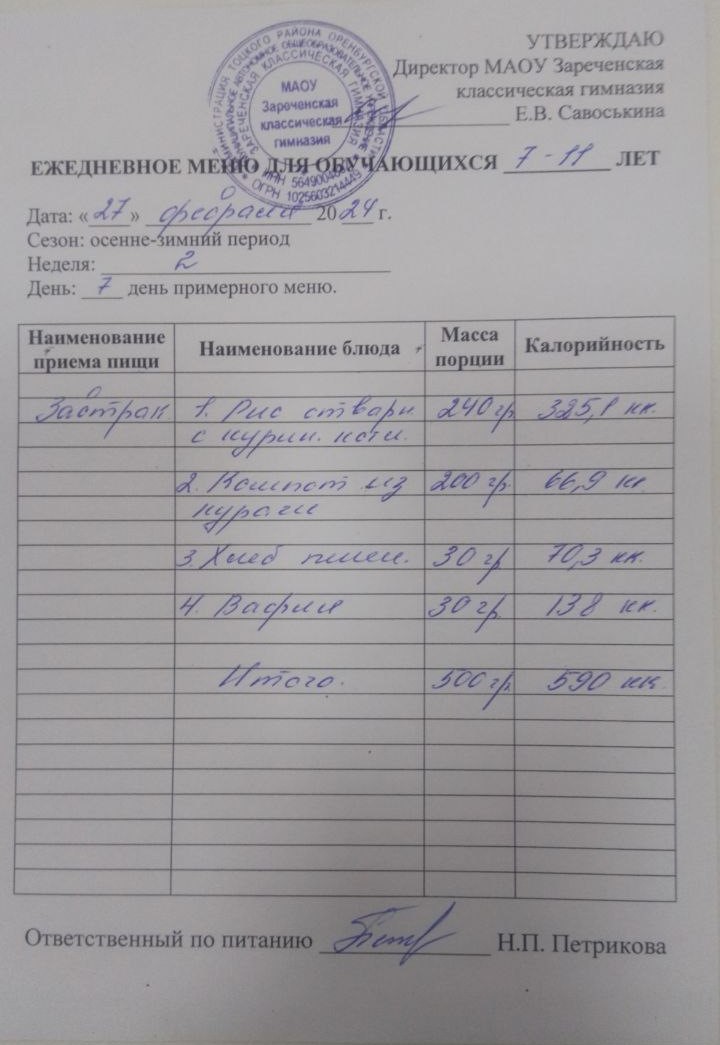 УТВЕРЖДАЮ
Директор МАОУ Зареченская
классическая гимназия
Е.В. Савоськина
АДМИНИСТРАЦИЯ ТОЦКОГО РАЙОНА ОРЕНБУРГСКОЙ ОБЛАСТИ
МУНИЦИПАЛЬНОЕ АВТОНОМНОЕ ОБЩЕОБРАЗОВАТЕЛЬНОЕ
ЗАРЕЧЕНСКАЯ КЛАССИЧЕСКАЯ ГИМНАЗИЯ
МАОУ
Зареченская
классическая
гимназия
ОГРН 1025603214449
ЕЖЕДНЕВНОЕ МЕНЮ ДЛЯ ОБУЧАЮЩИХСЯ 7-11 ЛЕТ
Дата: «27» февраля 2024 г.
Сезон: осенне-зимний период
Неделя: 2
День: 7 день примерного меню.
Наименование приема пищи Наименование блюда Масса порции Калорийность
Завтрак 1. Рис отварн. 240 гр 325,1 кк.
с курин. котл.
2. Компот из 200 гр. 66,9 кк
кураги
3. Хлеб пшен. 30 гр 70,3 кк.
4. Вафля 30 гр. 138 кк.
Итого. 500 гр 590 кк.
Ответственный по питанию Н.П. Петрикова